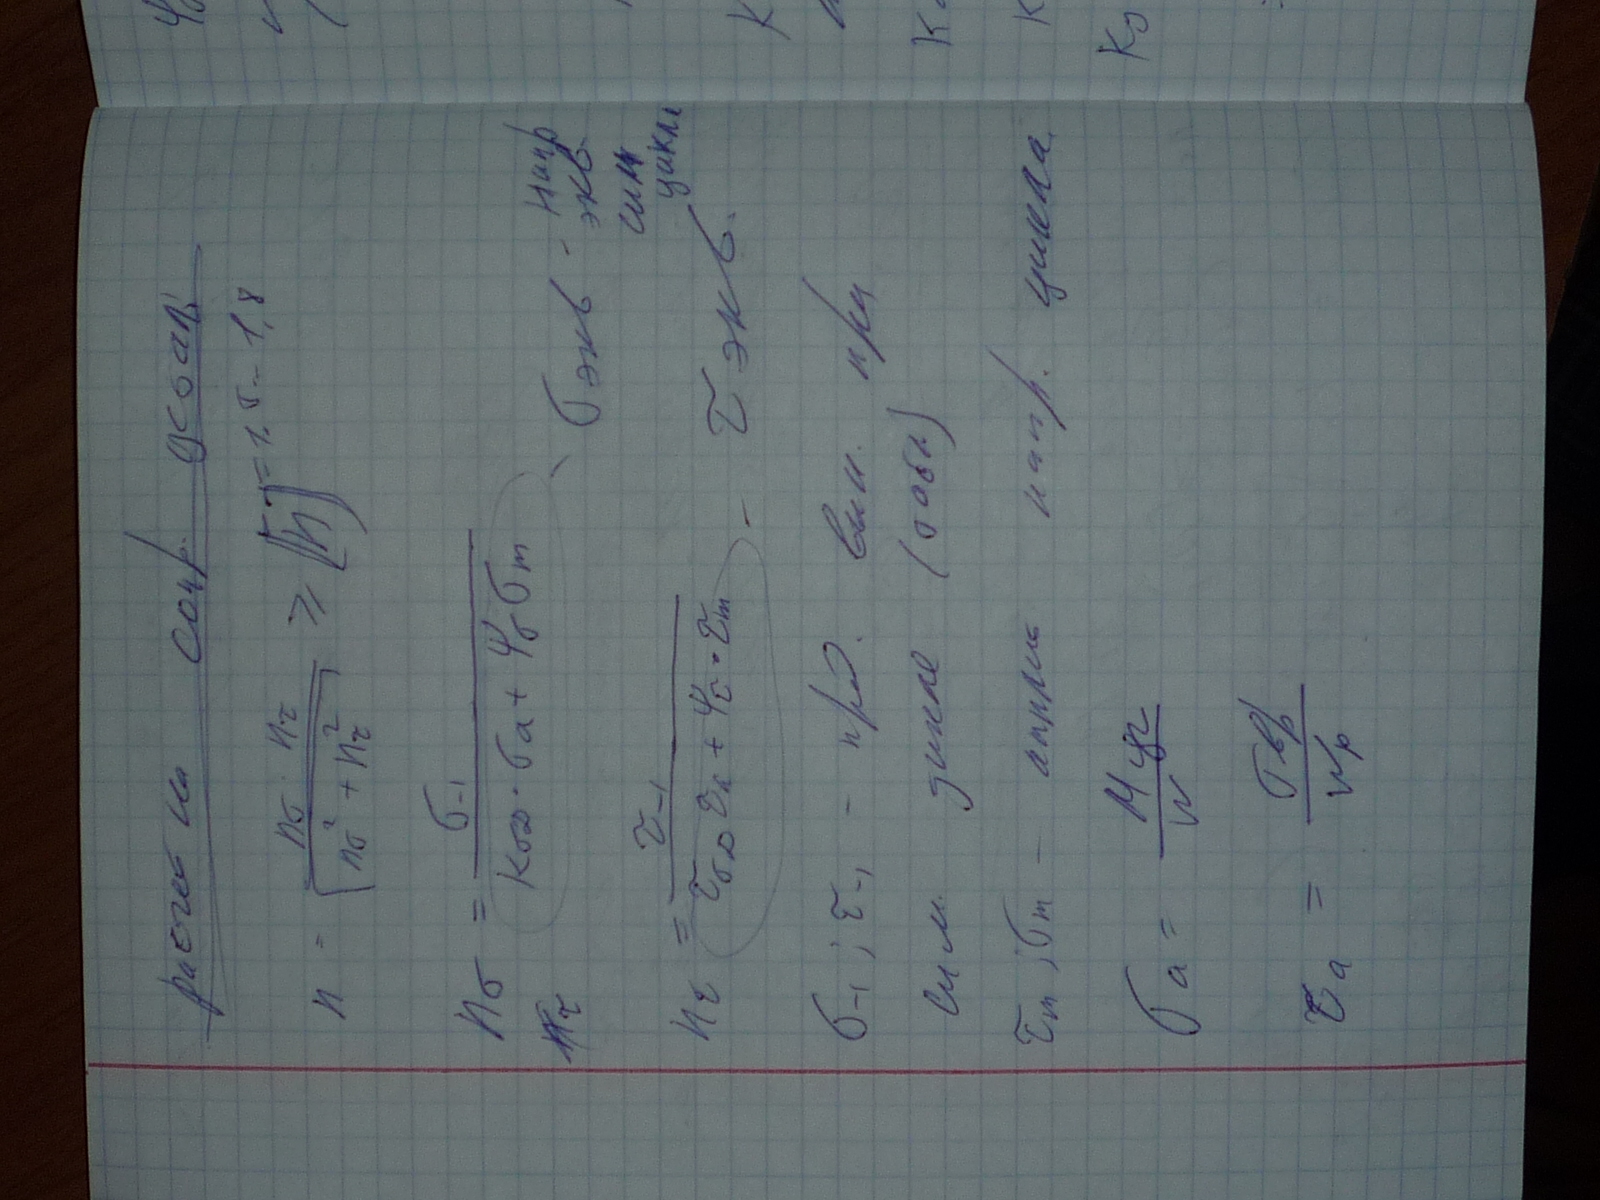 расчет на сопр. устал.
n = nσ · nτ / √(nσ² + nτ²) ≥ [n] = 1.5 - 1,8
nσ = σ-1 / (kσD · σa + ψσ σm) - σэкв - напр экв. сим цикла
nτ = τ-1 / (τσD τa + ψτ · τm) - τ экв.
σ-1; τ-1 - пред. вын. при
сим. цикле (табл.)
τm; σm - ампл. напр. цикла
σa = M / W
τa = / Wp